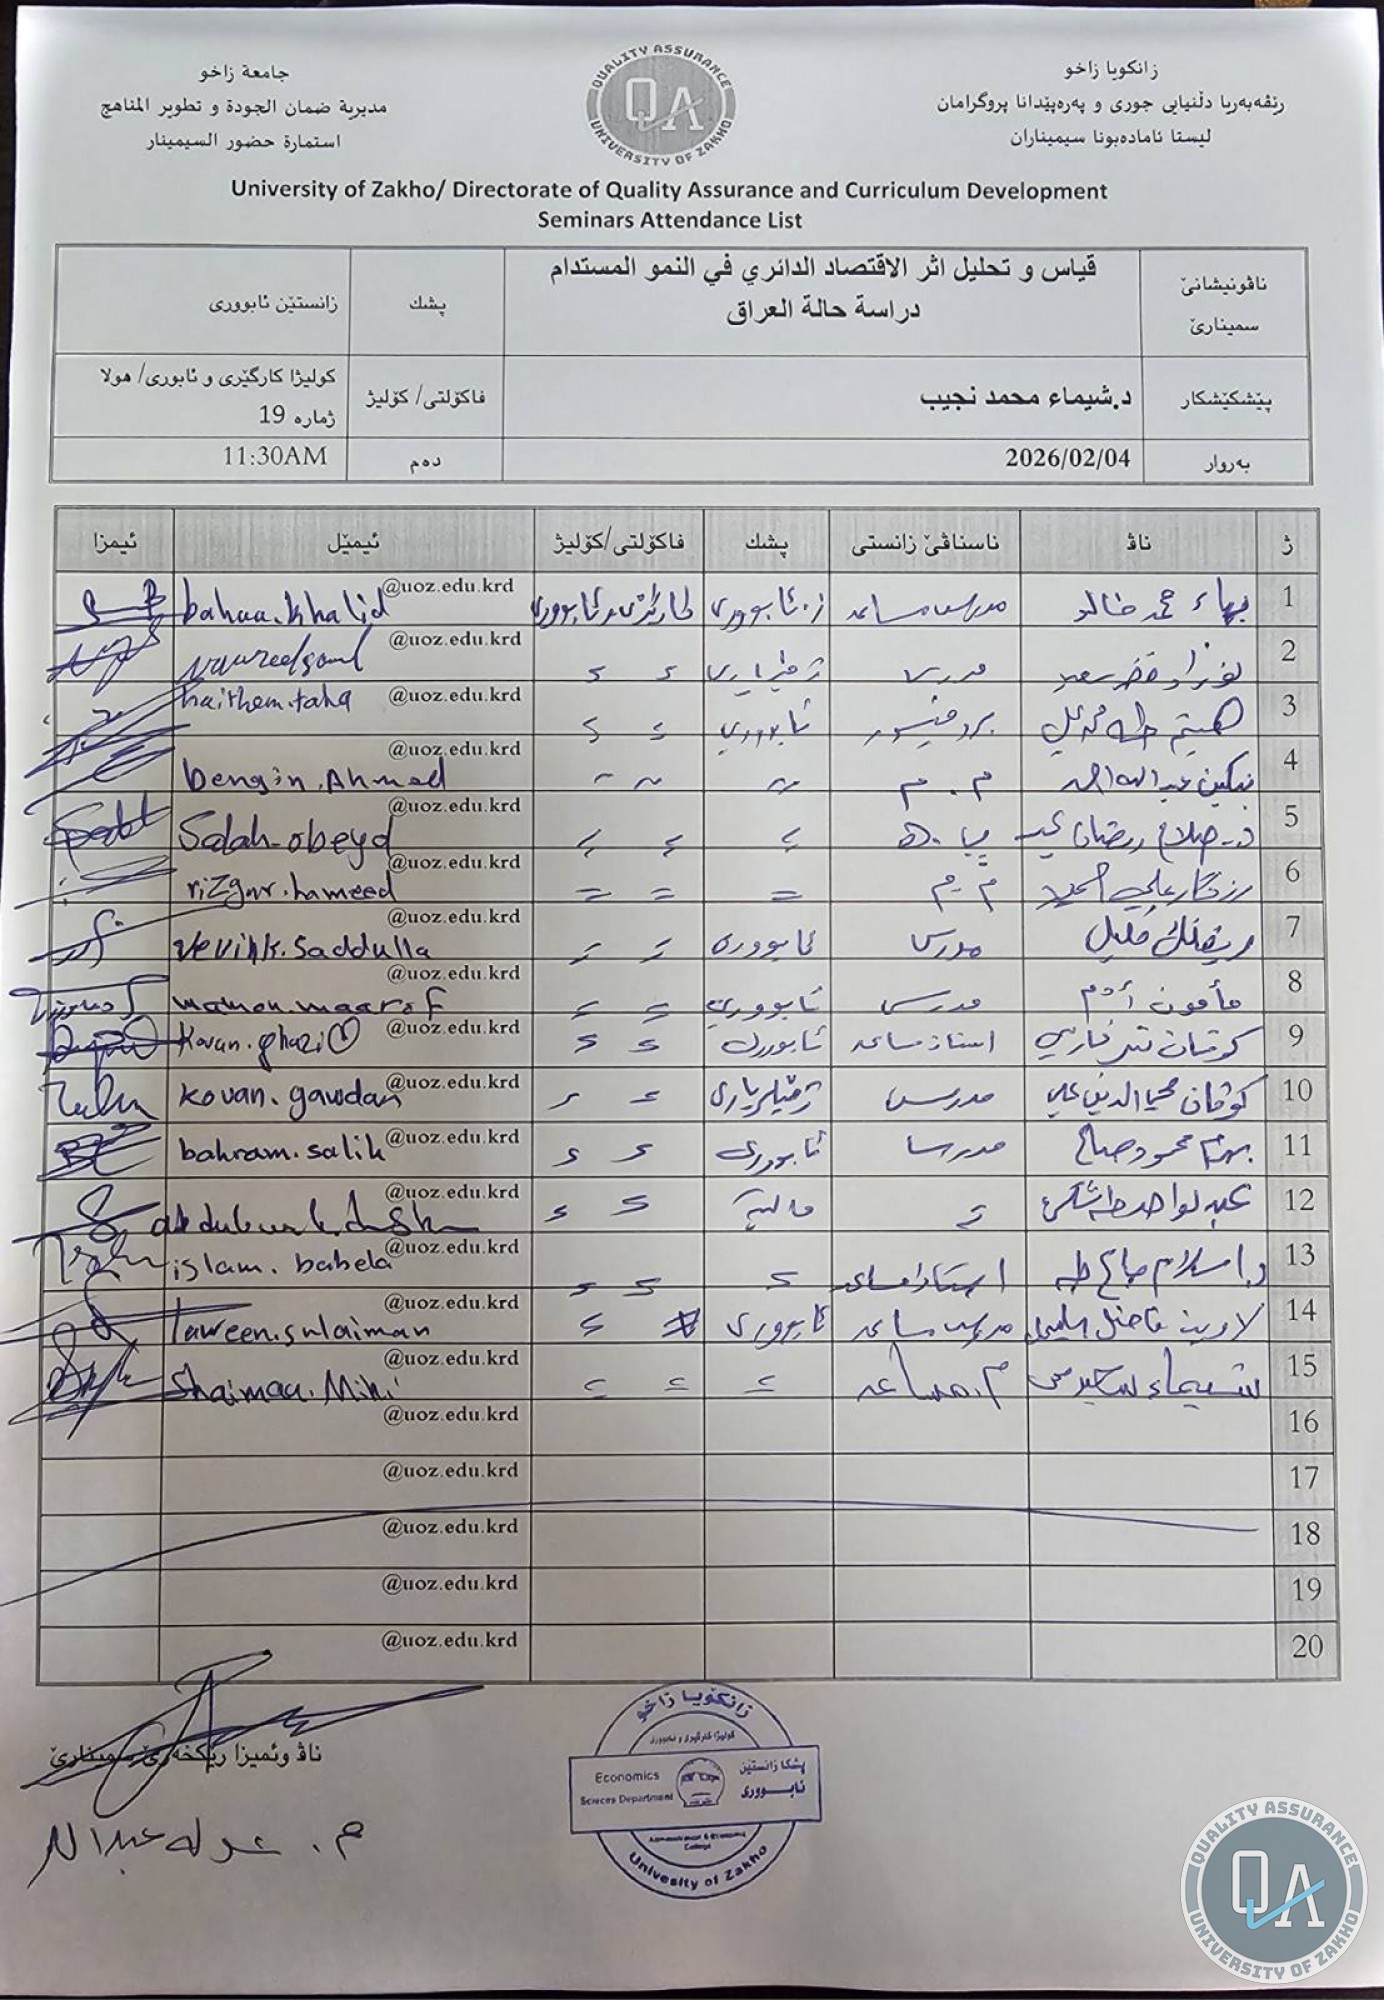 زانكویا زاخو
رێڤەبەریا دڵنیایی جوری و پەرەپێدانا پروگرامان
لیستا ئامادەبونا سیمیناران
QUALITY ASSURANCE
QA
UNIVERSITY OF ZAKHO
جامعة زاخو
مديرية ضمان الجودة و تطوير المناهج
استمارة حضور السيمينار
University of Zakho/ Directorate of Quality Assurance and Curriculum Development
Seminars Attendance List
ناڤونیشانێ سمینارێ
قياس و تحليل اثر الاقتصاد الدائري في النمو المستدام
دراسة حالة العراق
پشك
زانستێن ئابووری
پێشكێشكار
د.شيماء محمد نجيب
فاكۆلتی/ كۆلیژ
كولیژا كارگێری و ئابوری/ هولا
ژماره 19
بەروار
2026/02/04
دەم
11:30AM
ژ ناڤ ناسناڤێ زانستی پشك فاكۆلتی/كۆلیژ ئیمێل ئیمزا
1 بهاء محمد خالد مدرس مساعد ز.ئابووری كارگێری و ئابووری bahaa.khalid @uoz.edu.krd
2 مدرس @uoz.edu.krd
3 هيثم طه بروفيسور ئابووری haithem.taha @uoz.edu.krd
4 عبدالله احمد م.م bengin.Ahmed @uoz.edu.krd
5 د. صلاح رمضان Salah.obeyd @uoz.edu.krd
6 رزگار علي م.م rizgar.hameed @uoz.edu.krd
7 خليل مدرس ئابووری @uoz.edu.krd
8 مأمون مدرس ئابووری mamon.maarof @uoz.edu.krd
9 استاذ مساعد ئابووری Kovan.ghazi @uoz.edu.krd
10 كوڤان محي الدين علي مدرس ژمێریاری kovan.gawdan @uoz.edu.krd
11 بهرام محمود صالح مدرس ئابووری bahram.salih @uoz.edu.krd
12 عبدلواحد @uoz.edu.krd
13 د.اسلام صالح طه استاذ مساعد islam.babela @uoz.edu.krd
14 لاوين فاضل مدرس مساعد ئابووری laween.sulaiman @uoz.edu.krd
15 شيماء م.مساعد Shaimaa. @uoz.edu.krd
16 @uoz.edu.krd
17 @uoz.edu.krd
18 @uoz.edu.krd
19 @uoz.edu.krd
20 @uoz.edu.krd
ناڤ وئمیزا رێكخەرێ سمینارێ
زانكۆیا زاخو
كولیژا كارگێری و ئابووری
Economics
Sciences Department
پشكا زانستێن
ئابــووری
Administration & Economy
College
University of Zakho
QUALITY ASSURANCE
QA
UNIVERSITY OF ZAKHO